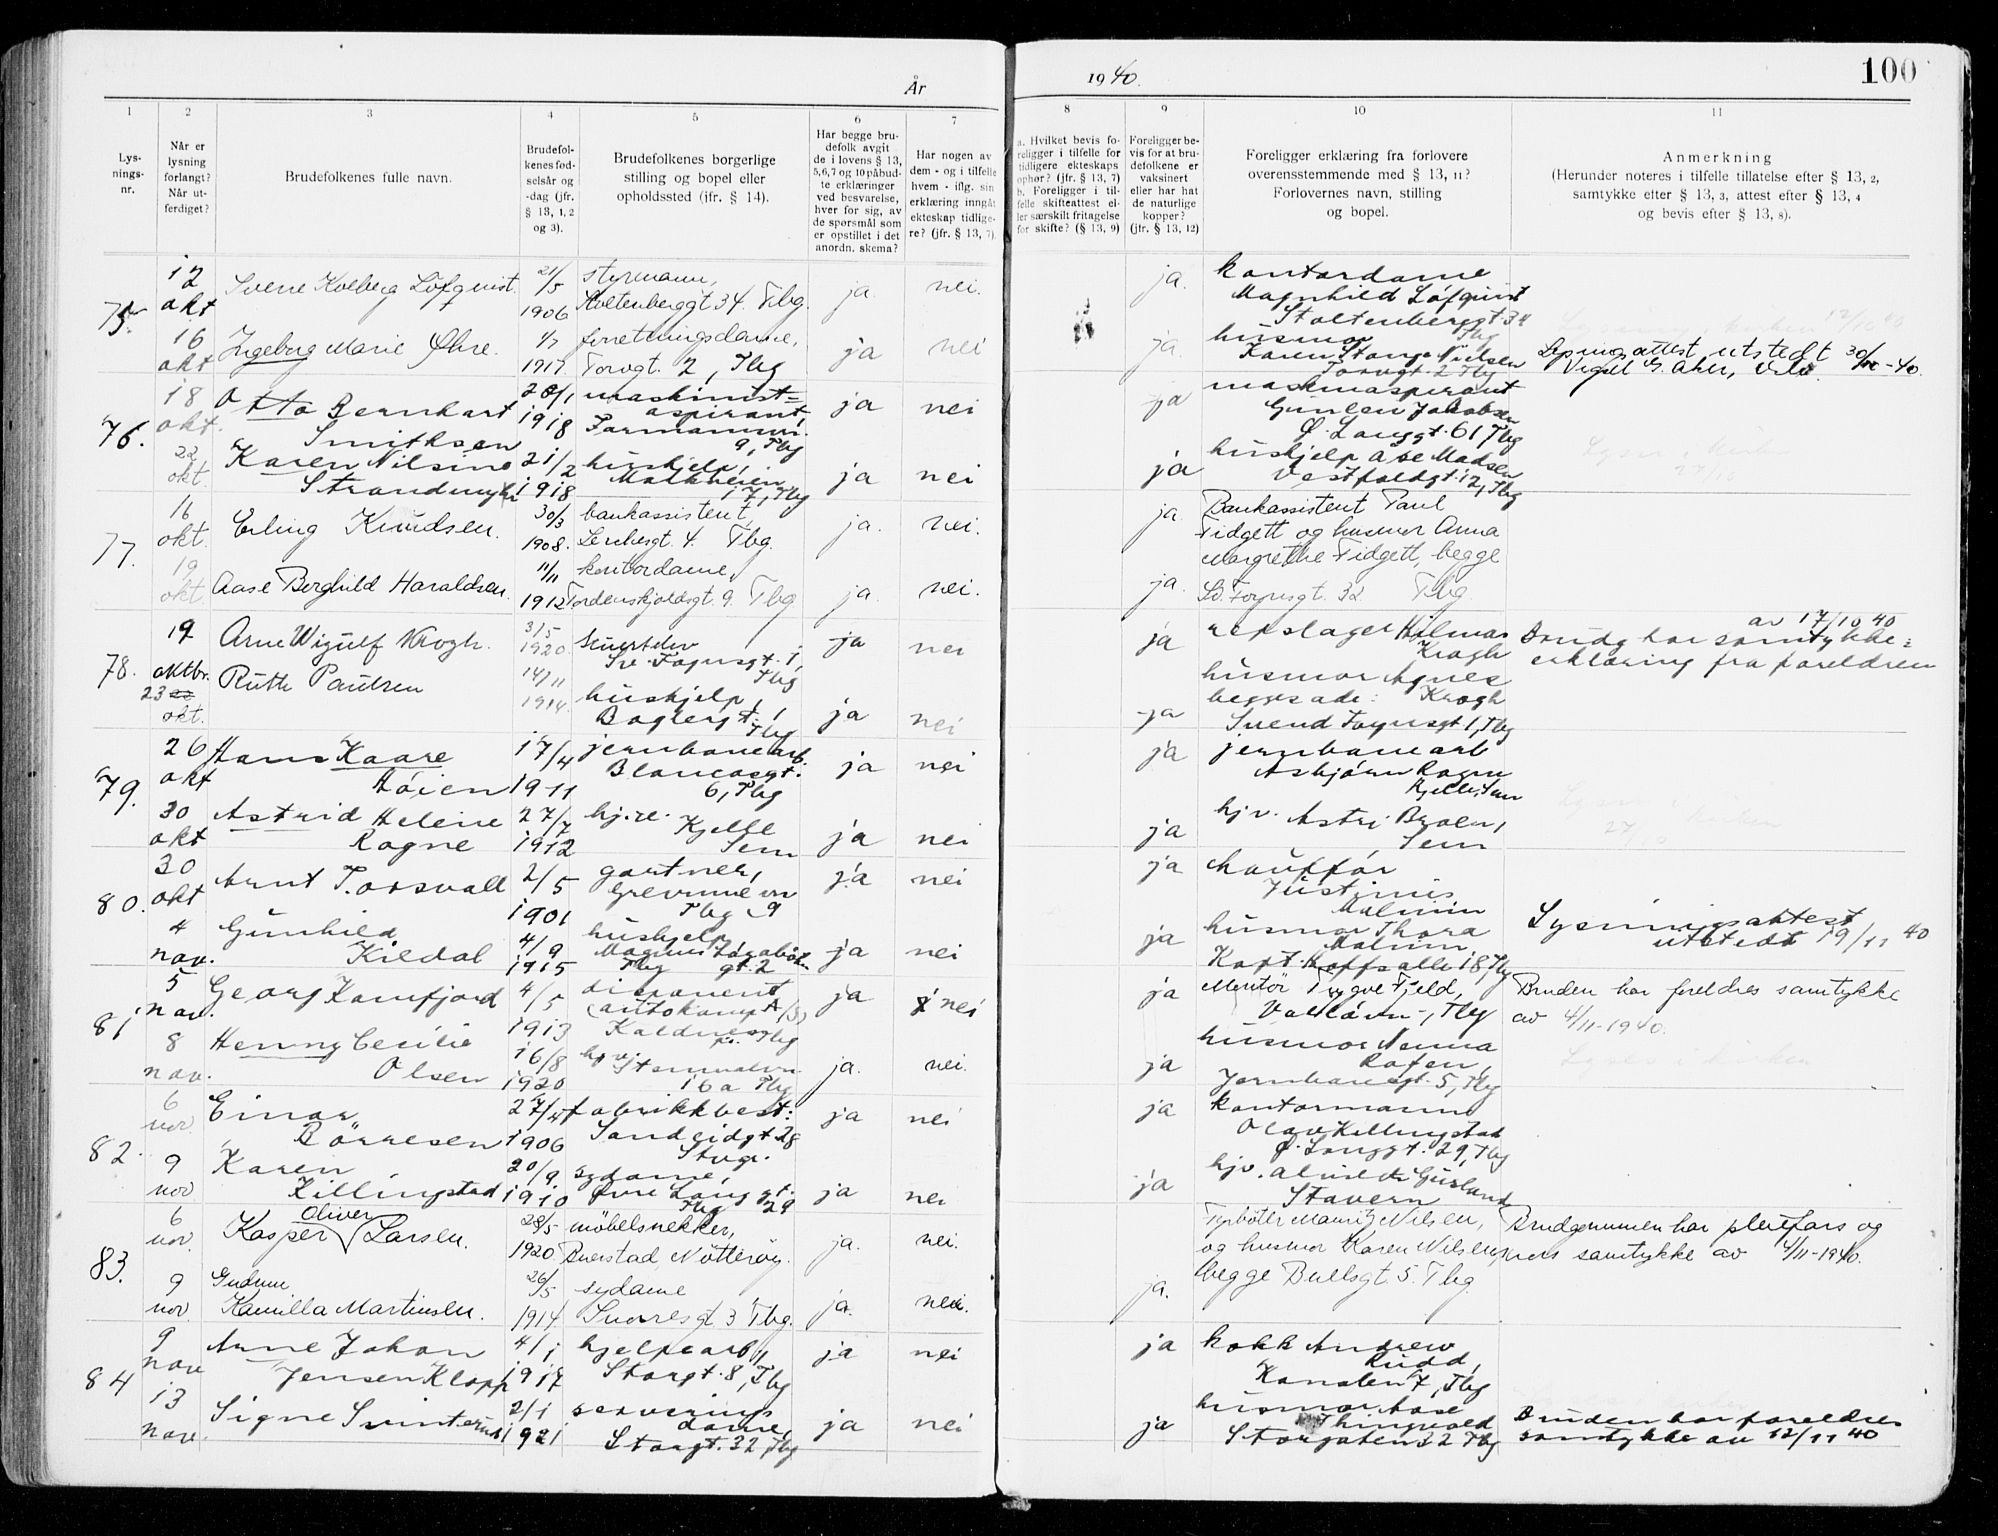 År
1940.
100
1
2
3
4
5
6
7
8
9
10
11
Lys-
nings-
nr.
Når er
lysning
forlangt?
Når ut-
ferdiget?
Brudefolkenes fulle navn.
Brudefol-
kenes fød-
selsår og
-dag (jfr.
§ 13, 1, 2
og 3).
Brudefolkenes borgerlige
stilling og bopel eller
opholdssted (jfr. § 14).
Har begge bru-
defolk avgit
de i lovens § 13,
5, 6, 7 og 10 påbud-
te erklæringer
ved besvarelse,
hver for sig, av
de spørsmål som
er opstillet i det
anordn. skema?
Har nogen av
dem - og i tilfelle
hvem - iflg. sin
erklæring inngåt
ekteskap tidlige-
re? (jfr. § 13, 7).
a. Hvilket bevis fo-
religger i tilfelle for
tidligere ekteskaps
ophør? (jfr. § 13, 7)
b. Foreligger i til-
felle skifteattest el-
ler særskilt fritagelse
for skifte? (§ 13, 9)
Foreligger be-
vis for at bru-
defolkene er
vaksinert
eller har hat
de naturlige
kopper?
(jfr. § 13, 12)
Foreligger erklæring fra forlovere
overensstemmende med § 13, 11?
Forlovernes navn, stilling
og bopel.
Anmerkning
(Herunder noteres i tilfelle tillatelse efter § 13, 2,
samtykke efter § 13, 3, attest efter § 13, 4
og bevis efter § 13, 8).
75.
12
okt
Sverre Kolberg Löfqvist.
21/5
1906
styrmann,
Stoltenberggt 34. Tbg.
ja.
nei.
ja.
kontordame
Magnhild Löfqvist
Stoltenberggt. 34
Tbg
16
okt
Ingeborg Marie Öhre.
1/7
1917.
forretningsdame,
Torvgt. 2, Tbg
ja
nei
ja
husmor
Karen Stange Nielsen
Torvgt. 2 Tbg
Lysningsattest utstedt 30/10-40.
76.
18
okt.
Otto Bernhart
Smithsen
20/1
1918
maskinist=
aspirant
Farmannv.
9, Tbg
ja
nei
ja
maskinaspirant
Jakobsen
Ø. Langgt. 61 Tbg
22
okt.
Karen Nilsine
Strandmyhr
21/2
1918
hushjelp,
17, Tbg
ja
nei
ja
hushjelp Åse Madsen
Vestfoldgt. 12, Tbg
77.
16
okt.
Erling Knudsen.
30/3
1908.
bankassistent,
Lerchesgt. 4. Tbg.
ja.
nei.
ja.
Bankassistent Paul
Fidgett og husmor Anna
Margrethe Fidgett, begge
Sv. Foynsgt. 32. Tbg.
19
okt.
Aase Borghild Haraldsen.
11/11
1912
kontordame,
Tordenskjoldsgt. 9. Tbg
ja.
nei.
ja.
78.
19
oktbr.
Arne Wigulf Krogh.
3/5
1920.
Stuertelev
Sv. Foynsgt. 1,
Tbg
ja
nei
ja
repslager Hilmar
Krogh
husmor Agnes
Krogh
begges adr:
Svend Foynsgt 1, Tbg
av 17/10 40
Brudg har samtykke=
erklæring fra foreldren
23
okt.
Ruth Paulsen
14/11
1914.
hushjelp,
Baglergt. 1
Tbg
ja
nei
ja
79.
26
okt
Hans Kaare
Løien
17/4
1911
jernbanearb.
Blancagt.
6, Tbg
ja
nei
ja
jernbanearb
Asbjørn Rogne
Kjelle, Sem
30
okt
Astrid Helene
Rogne
27/7
1912
hj.v.
Kjelle
Sem
ja
nei
ja
hjv. Astri Broen,
Sem
27/10
80.
30
okt
Arnt Torsvall
2/5
1901
gartner,
Grevinnevn
Tbg 9
ja
nei
ja
chauffør
Justinus
Malmin
4
nov.
Gunhild
Kildal
4/9
1915
hushjelp
Magnus Lagabøters
Tbg gt. 2
ja
nei
ja
husmor Thora
Malmin
Kapt. Hoffsalle 18, Tbg
Lysningsattest
utstedt 19/11 40
81
5
nov.
Georg Kamfjord
4/5
1913
disponent
(autokomp A/S)
Kaldnes
Tbg
ja
nei
ja
Montör Trygve Fjeld,
Valløvn-, Tbg
Bruden har foreldres samtykke
av 4/11-1940.
8
nov.
Henny Cecilie
Olsen
16/8
1920
hj. v.
16a Tbg
ja.
nei.
ja
husmor Nanna
Rofen,
Jernbanegt. 5, Tbg
82.
6
nov.
Einar
Börresen
27/4
1906
fabrikkbest:
Sandeidgt 28
Stvgr.
ja
nei
ja
kontormann
Olav Killingstad
Ø. Langgt. 29, Tbg
9
nov
Karen
Killingstad
20/9.
1910
sydame,
Øvre Langgt.
Tbg 29
ja
nei
ja
hjv. Alvilde Gusland
Stavern
83.
6
nov.
Oliver
Kasper Larsen.
28/5
1920
möbelsnekker,
Buerstad, Nötteröy.
ja.
nei.
Fyrbøter Mauritz Nilsen,
og husmor Karen Nilsen,
begge Bullsgt. 5. Tbg.
Brudgommen har pleiefars og
mors samtykke av 4/11-1940.
9
nov
Gudrun
Kamilla Martinsen.
26/5
1914
sydame
Snorresgt 3 Tbg.
ja.
nei.
ja.
84
9
nov
Arne Johan
Jensen Klopp
4/1
1917
hjelpearb,
Storgt. 8, Tbg
ja
nei
ja
kokk Andrew
Rudd,
Kanalen 7, Tbg
13
nov.
Signe Svinterud
2/1
1921
serverings
dame,
Storgt. 32 Tbg
ja
nei
ja
husmor Aase
Thingvold
Storgaten 32 Tbg
Bruden har foreldres
samtykke av 12/11 40